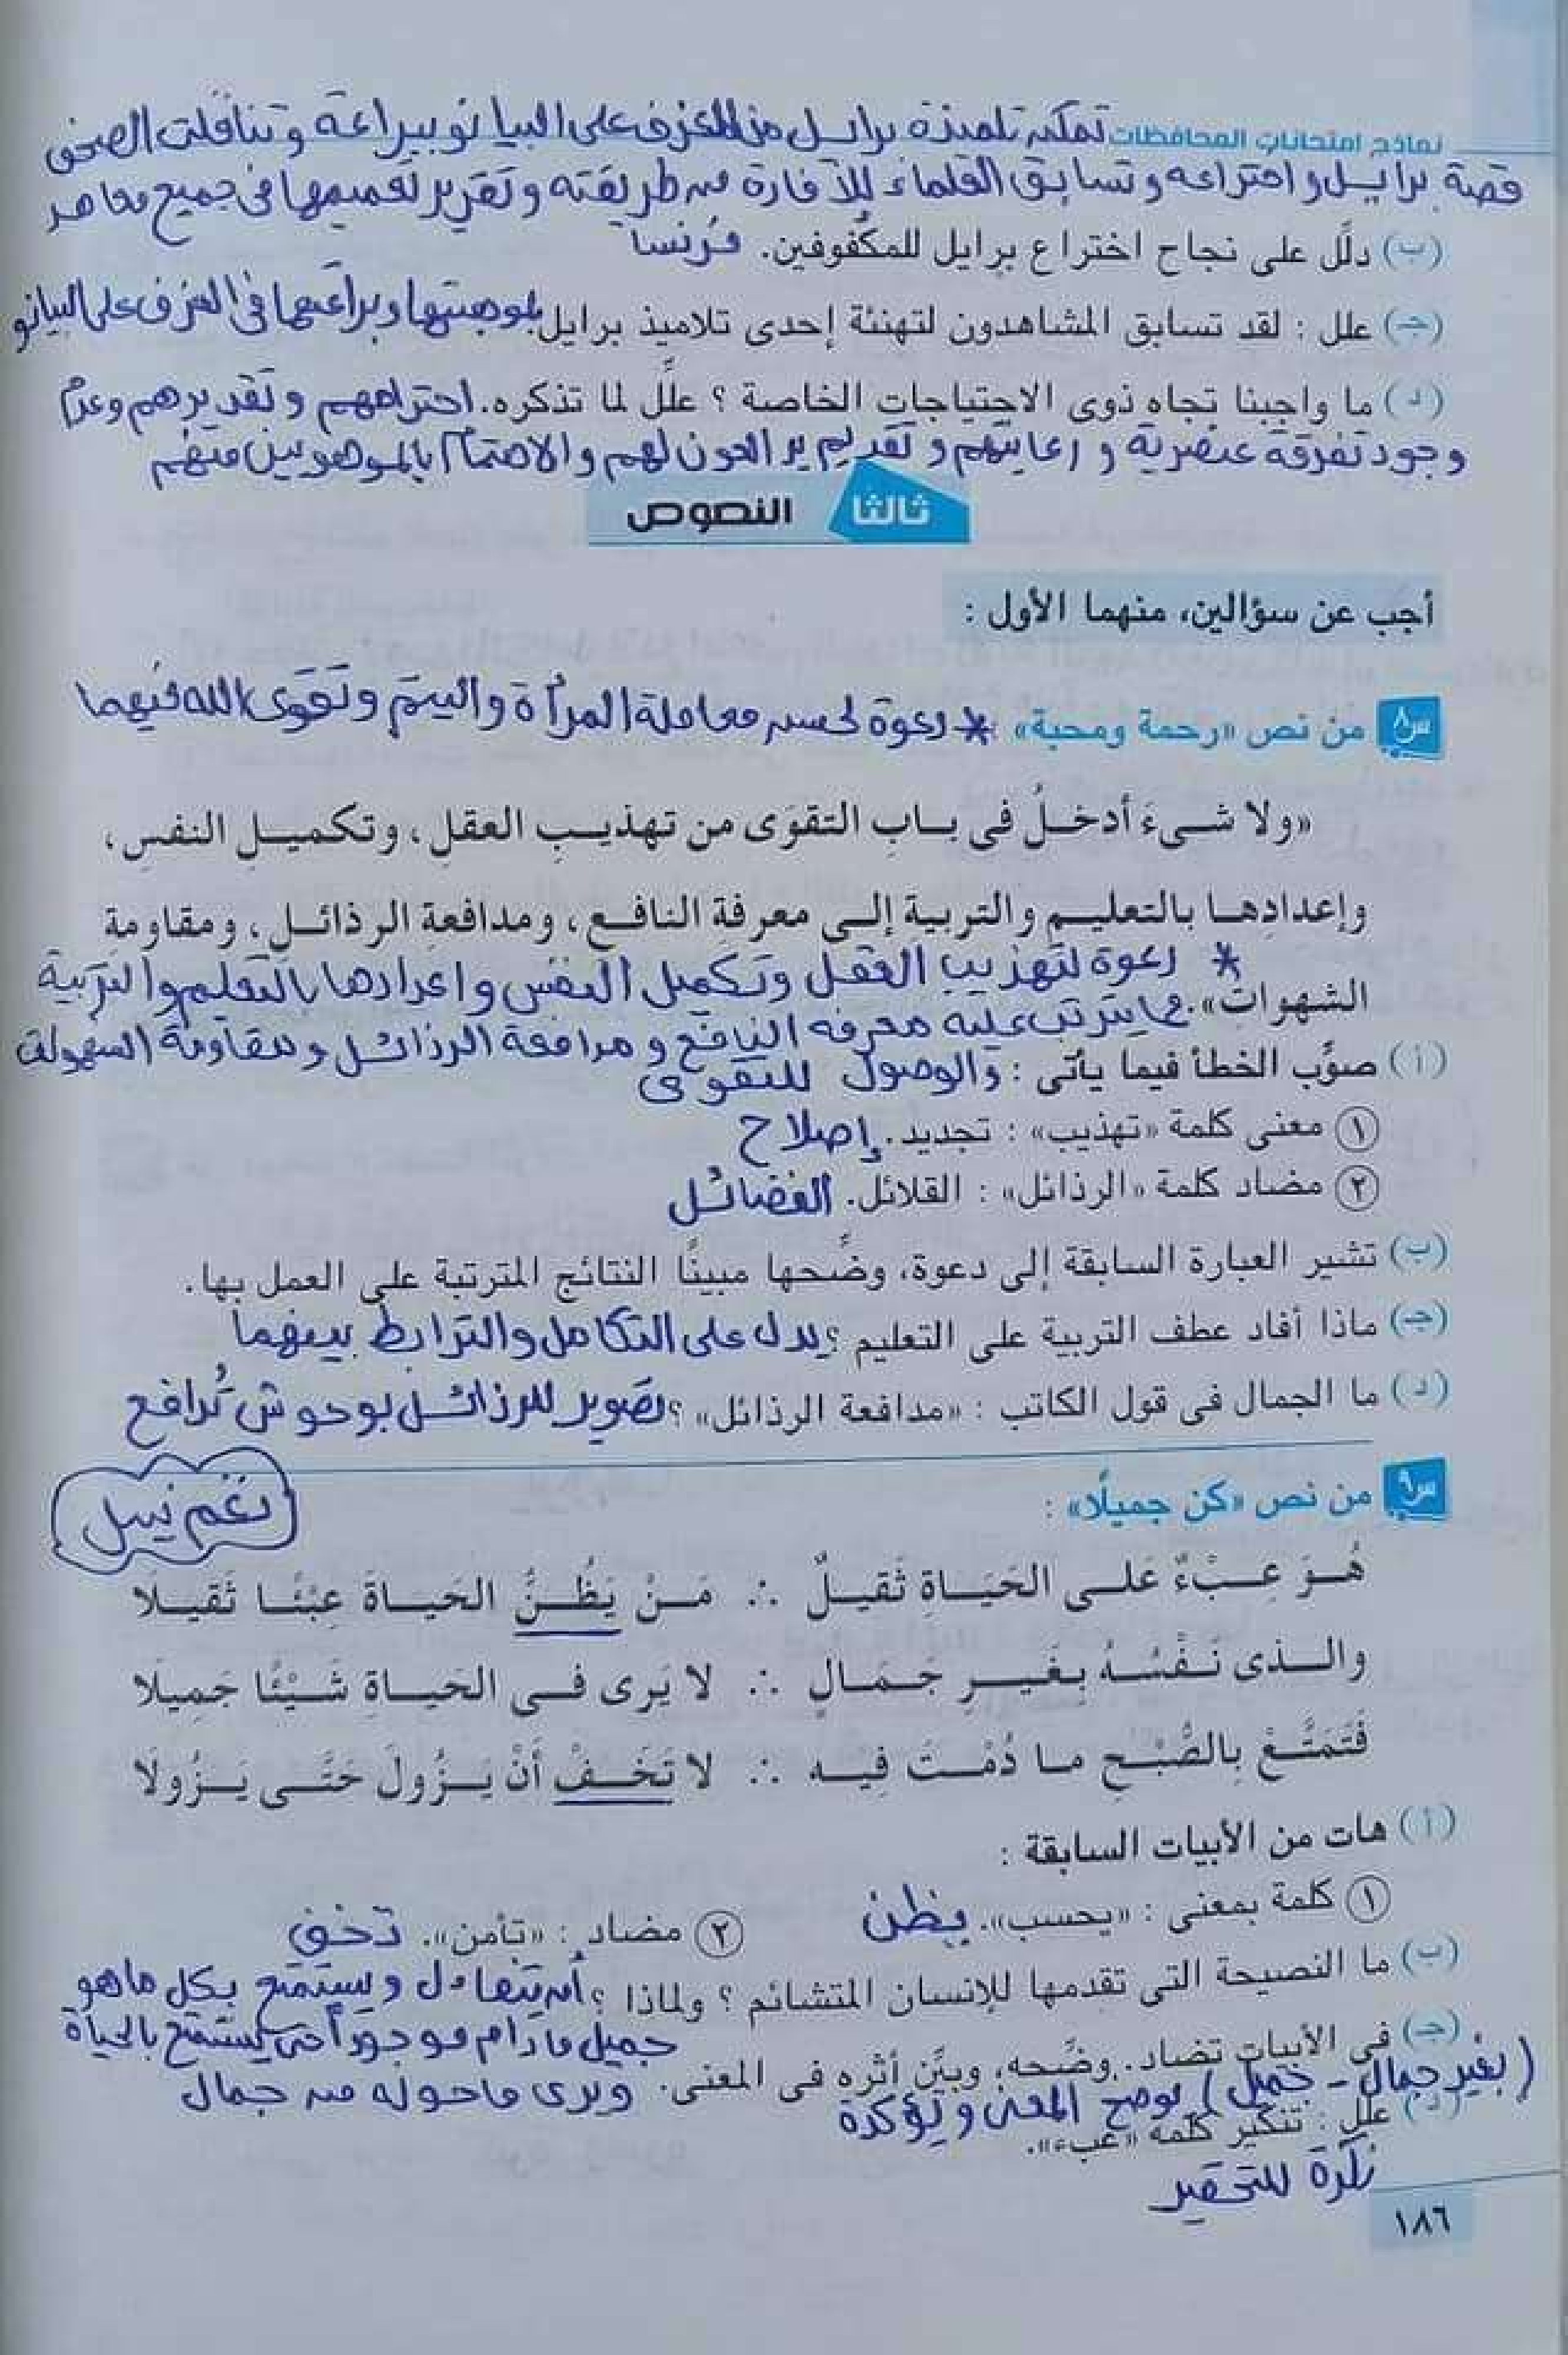 نماذج امتحانات المحافظات تمكن تلميذة برايل من العزف على البيانو ببراعة وتناقلت الصحف
قصة برايل واختراعه وتسابق العلماء للافادة من طريقته وتقرير تعميمها فى جميع معاهد
(ب) دلِّل على نجاح اختراع برايل للمكفوفين. فرنسا
(جـ) علل : لقد تسابق المشاهدون لتهنئة إحدى تلاميذ برايل. لموهبتها وبراعتها فى العزف على البيانو
(د) ما واجبنا تجاه ذوى الاحتياجات الخاصة ؟ علِّل لما تذكره. احترامهم وتقديرهم وعدم
وجود تفرقة عنصرية و رعايتهم وتقديم يد العون لهم والاهتمام بالموهوبين منهم
ثالثا النصوص
أجب عن سؤالين، منهما الأول :
س٨ من نص «رحمة ومحبة» * دعوة لحسن معاملة المرأة واليتيم وتقوى الله فيهما
«ولا شىءَ أدخلُ فى بابِ التقوَى من تهذيبِ العقلِ، وتكميلِ النفسِ،
وإعدادِها بالتعليمِ والتربيةِ إلى معرفةِ النافعِ، ومدافعةِ الرذائلِ، ومقاومة
* دعوة لتهذيب العقل وتكميل النفس واعدادها بالتعليم والتربية
الشهوات». ما يترتب عليه معرفة النافع و مدافعة الرذائل و مقاومة الشهوات
(أ) صوِّب الخطأ فيما يأتى : والوصول للتقوى
١ معنى كلمة «تهذيب» : تجديد. إصلاح
٢ مضاد كلمة «الرذائل» : القلائل. الفضائل
(ب) تشير العبارة السابقة إلى دعوة، وضِّحها مبينًا النتائج المترتبة على العمل بها.
(جـ) ماذا أفاد عطف التربية على التعليم ؟ يدل على التكامل والترابط بينهما
(د) ما الجمال فى قول الكاتب : «مدافعة الرذائل» ؟ تصوير للرذائل بوحوش تُدافع
س٩ من نص «كن جميلًا» :
نغم نيسل
هُـوَ عِـبْءٌ عَلـى الحَيَـاةِ ثَقيلٌ ∴ مَـنْ يَظُـنُّ الحَيـاةَ عِبْئًـا ثَقيـلَا
والـذى نَـفْسُـهُ بِغَيـرِ جَـمَـالٍ ∴ لا يَرى فـى الحَيـاةِ شَـيْئًا جَمِيلَا
فَتَمَتَّـعْ بِالصُّبْـحِ مـا دُمْـتَ فِيـه ∴ لا تَخَـفْ أَنْ يَـزُولَ حَتَّـى يَـزُولَا
(أ) هات من الأبيات السابقة :
١ كلمة بمعنى : «يحسب». يظن ٢ مضاد : «تأمن». تخف
(ب) ما النصيحة التى تقدمها للإنسان المتشائم ؟ ولماذا ؟ أن يتفاءل ويستمتع بكل ماهو
جميل مادام موجوداً حتى يستمتع بالحياة
(جـ) فى الأبيات تضاد. وضِّحه، وبيِّن أثره فى المعنى. ويرى ماحوله من جمال
(بغير جمال - جميل) يوضح المعنى ويؤكدة
(د) علل : تنكير كلمة «عبء».
نكرة للتحقير
١٨٦